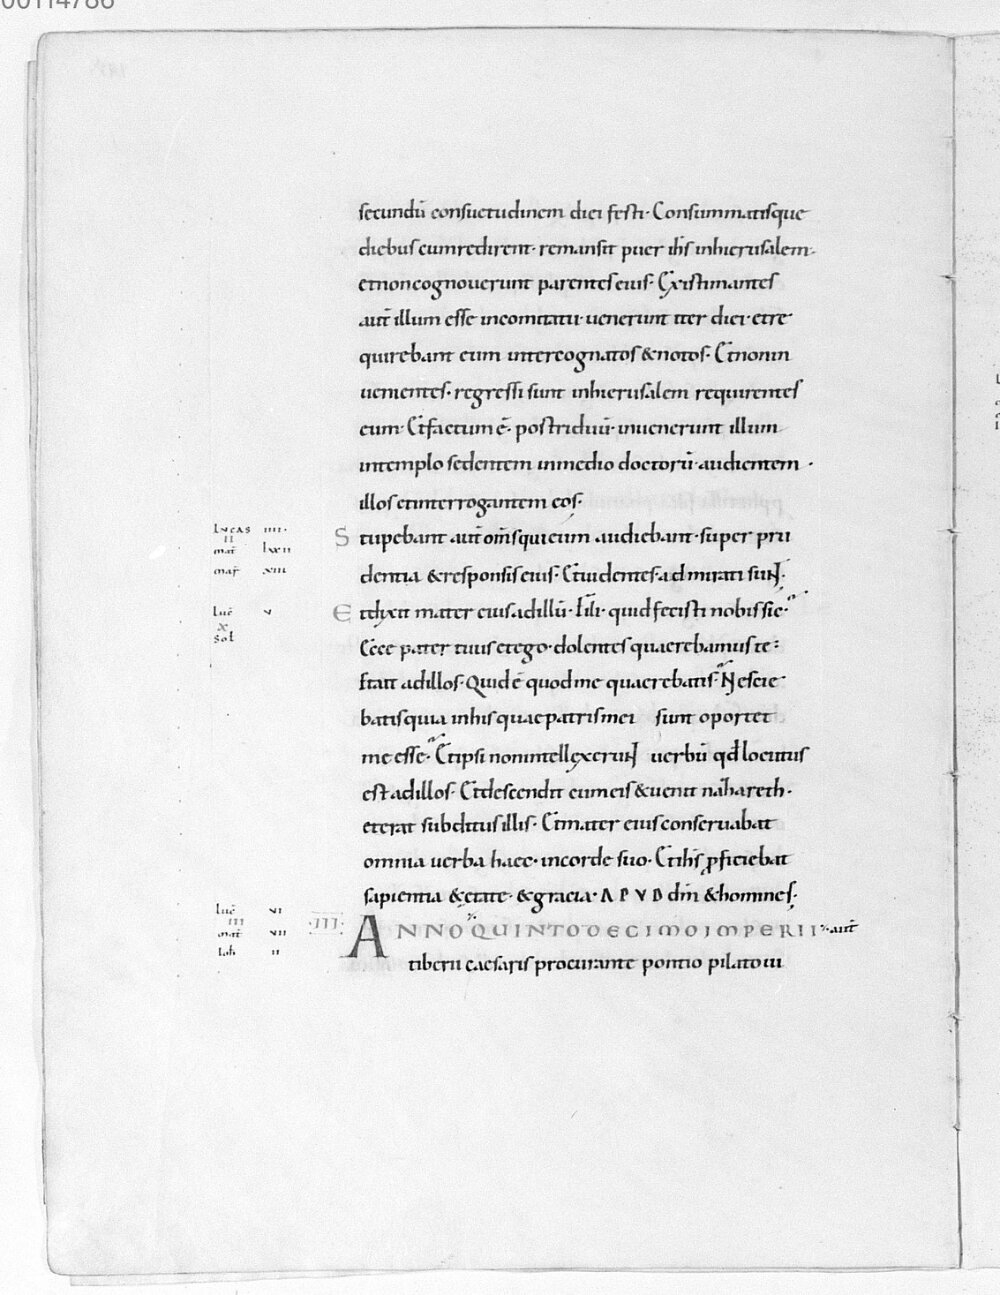 00114786
secundū consuetudinem diei festi· Consummatisque
diebus cum redirent· remansit puer ihs inhierusalem·
etnoncognouerunt parentes eius· Existimantes
aut̄ illum esse incomitatu· uenerunt iter diei· etre
quirebant eum intercognatos &notos· Etnonin
uenientes· regressi sunt inhierusalem requirentes
eum· Etfactum ē· postriduū· inuenerunt illum
intemplo sedentem inmedio doctorū· audientem·
illos etinterrogantem eos·
Lucas IIII·
II
mat̄ lxvii
mar̄ xiii
Stupebant aut̄ om̄s quieum audiebant· super pru
dentia &responsis eius· Etuidentes admirati sunt·
luc̄ v
x
sol
Etdixit mater eius adillū· fili· quid fecisti nobis sic·
Ecce pater tuus etego· dolentes quaerebamus te:
Etait adillos· Quid ē quodme quaerebatis· Nescie
batis quia inhis quae patris mei sunt oportet
me esse· Etipsi nonintellexerunt uerbū qd̄ locutus
est adillos· Etdescendit cumeis &uenit nazareth·
eterat subditus illis· Etmater eius conseruabat
omnia uerba haec· incorde suo· Etihs proficiebat
sapientia &etate· &gracia· APVD dm̄ &homines·
luc̄ vi
III
mat̄ vii
Ioh̄ ii
·III·
ANNO QUINTODECIMO IMPERII aut̄
tiberii caesaris procurante pontio pilato iu